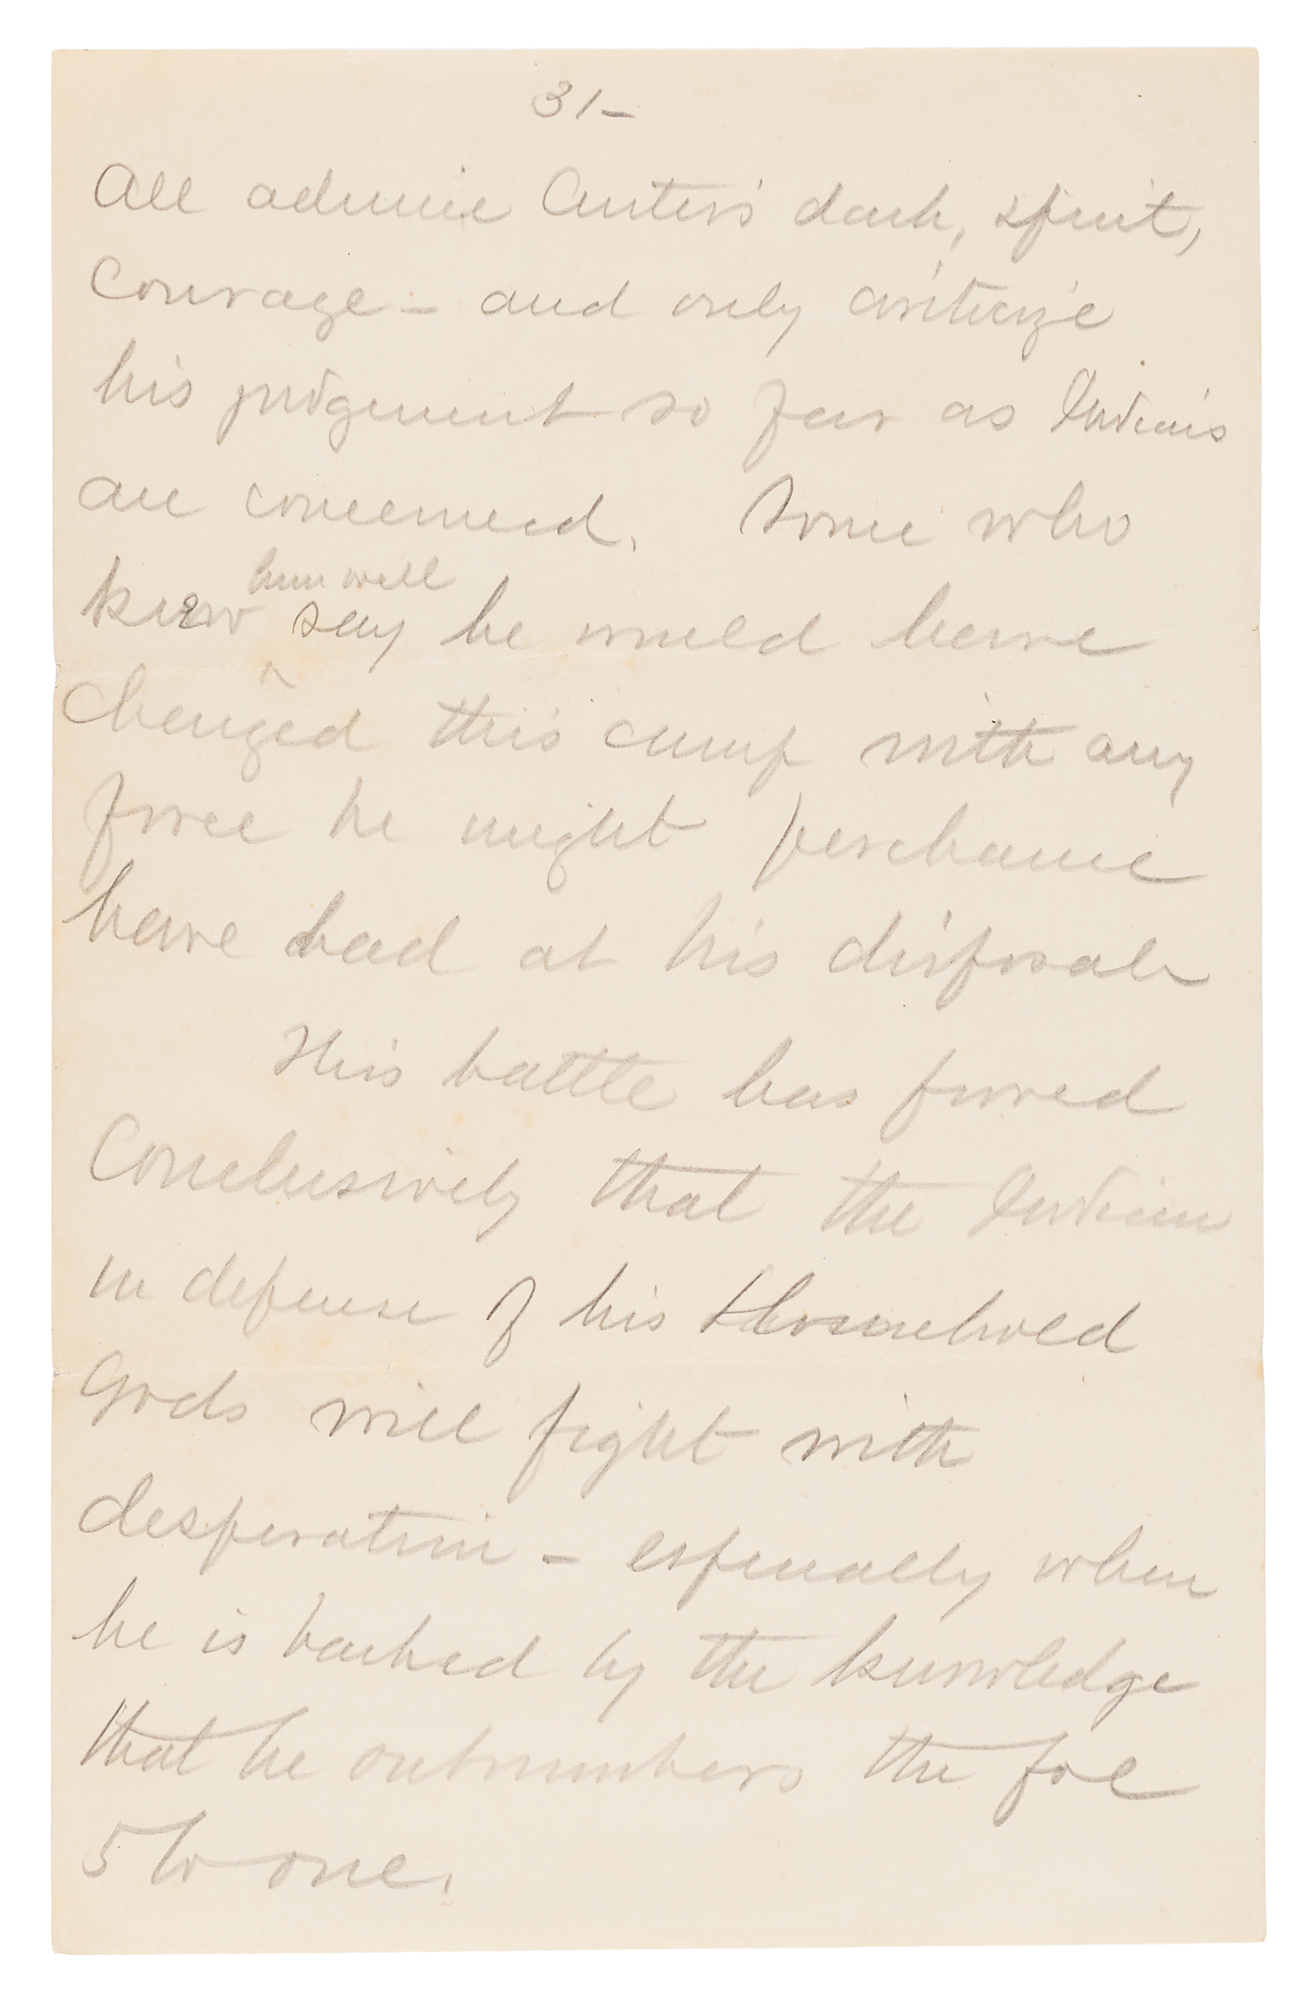 31-
All admire Custer's dash, spirit,
Courage - and only criticize
his judgement so far as Indians
are concerned. Some who
knew him well say he would have
charged this camp with any
force he might perchance
have had at his disposal
This battle has proved
Conclusively that the Indian
in defense of his Household
Gods will fight with
desperation - especially when
he is backed by the knowledge
that he outnumbers the foe
5 to one.